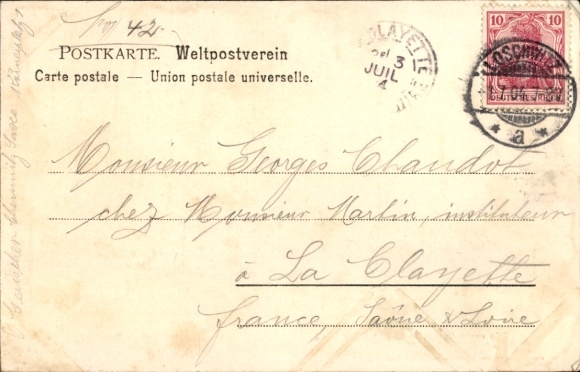 42
POSTKARTE. Weltpostverein
Carte postale — Union postale universelle.
LA CLAYETTE
3
JUIL
4
10 10
DEUTSCHES REICH
LOSCHWITZ
1.7.04.
* a *
Monsieur Georges Chaudot
chez Monsieur Martin, instituteur
à La Clayette
France, Saône & Loire